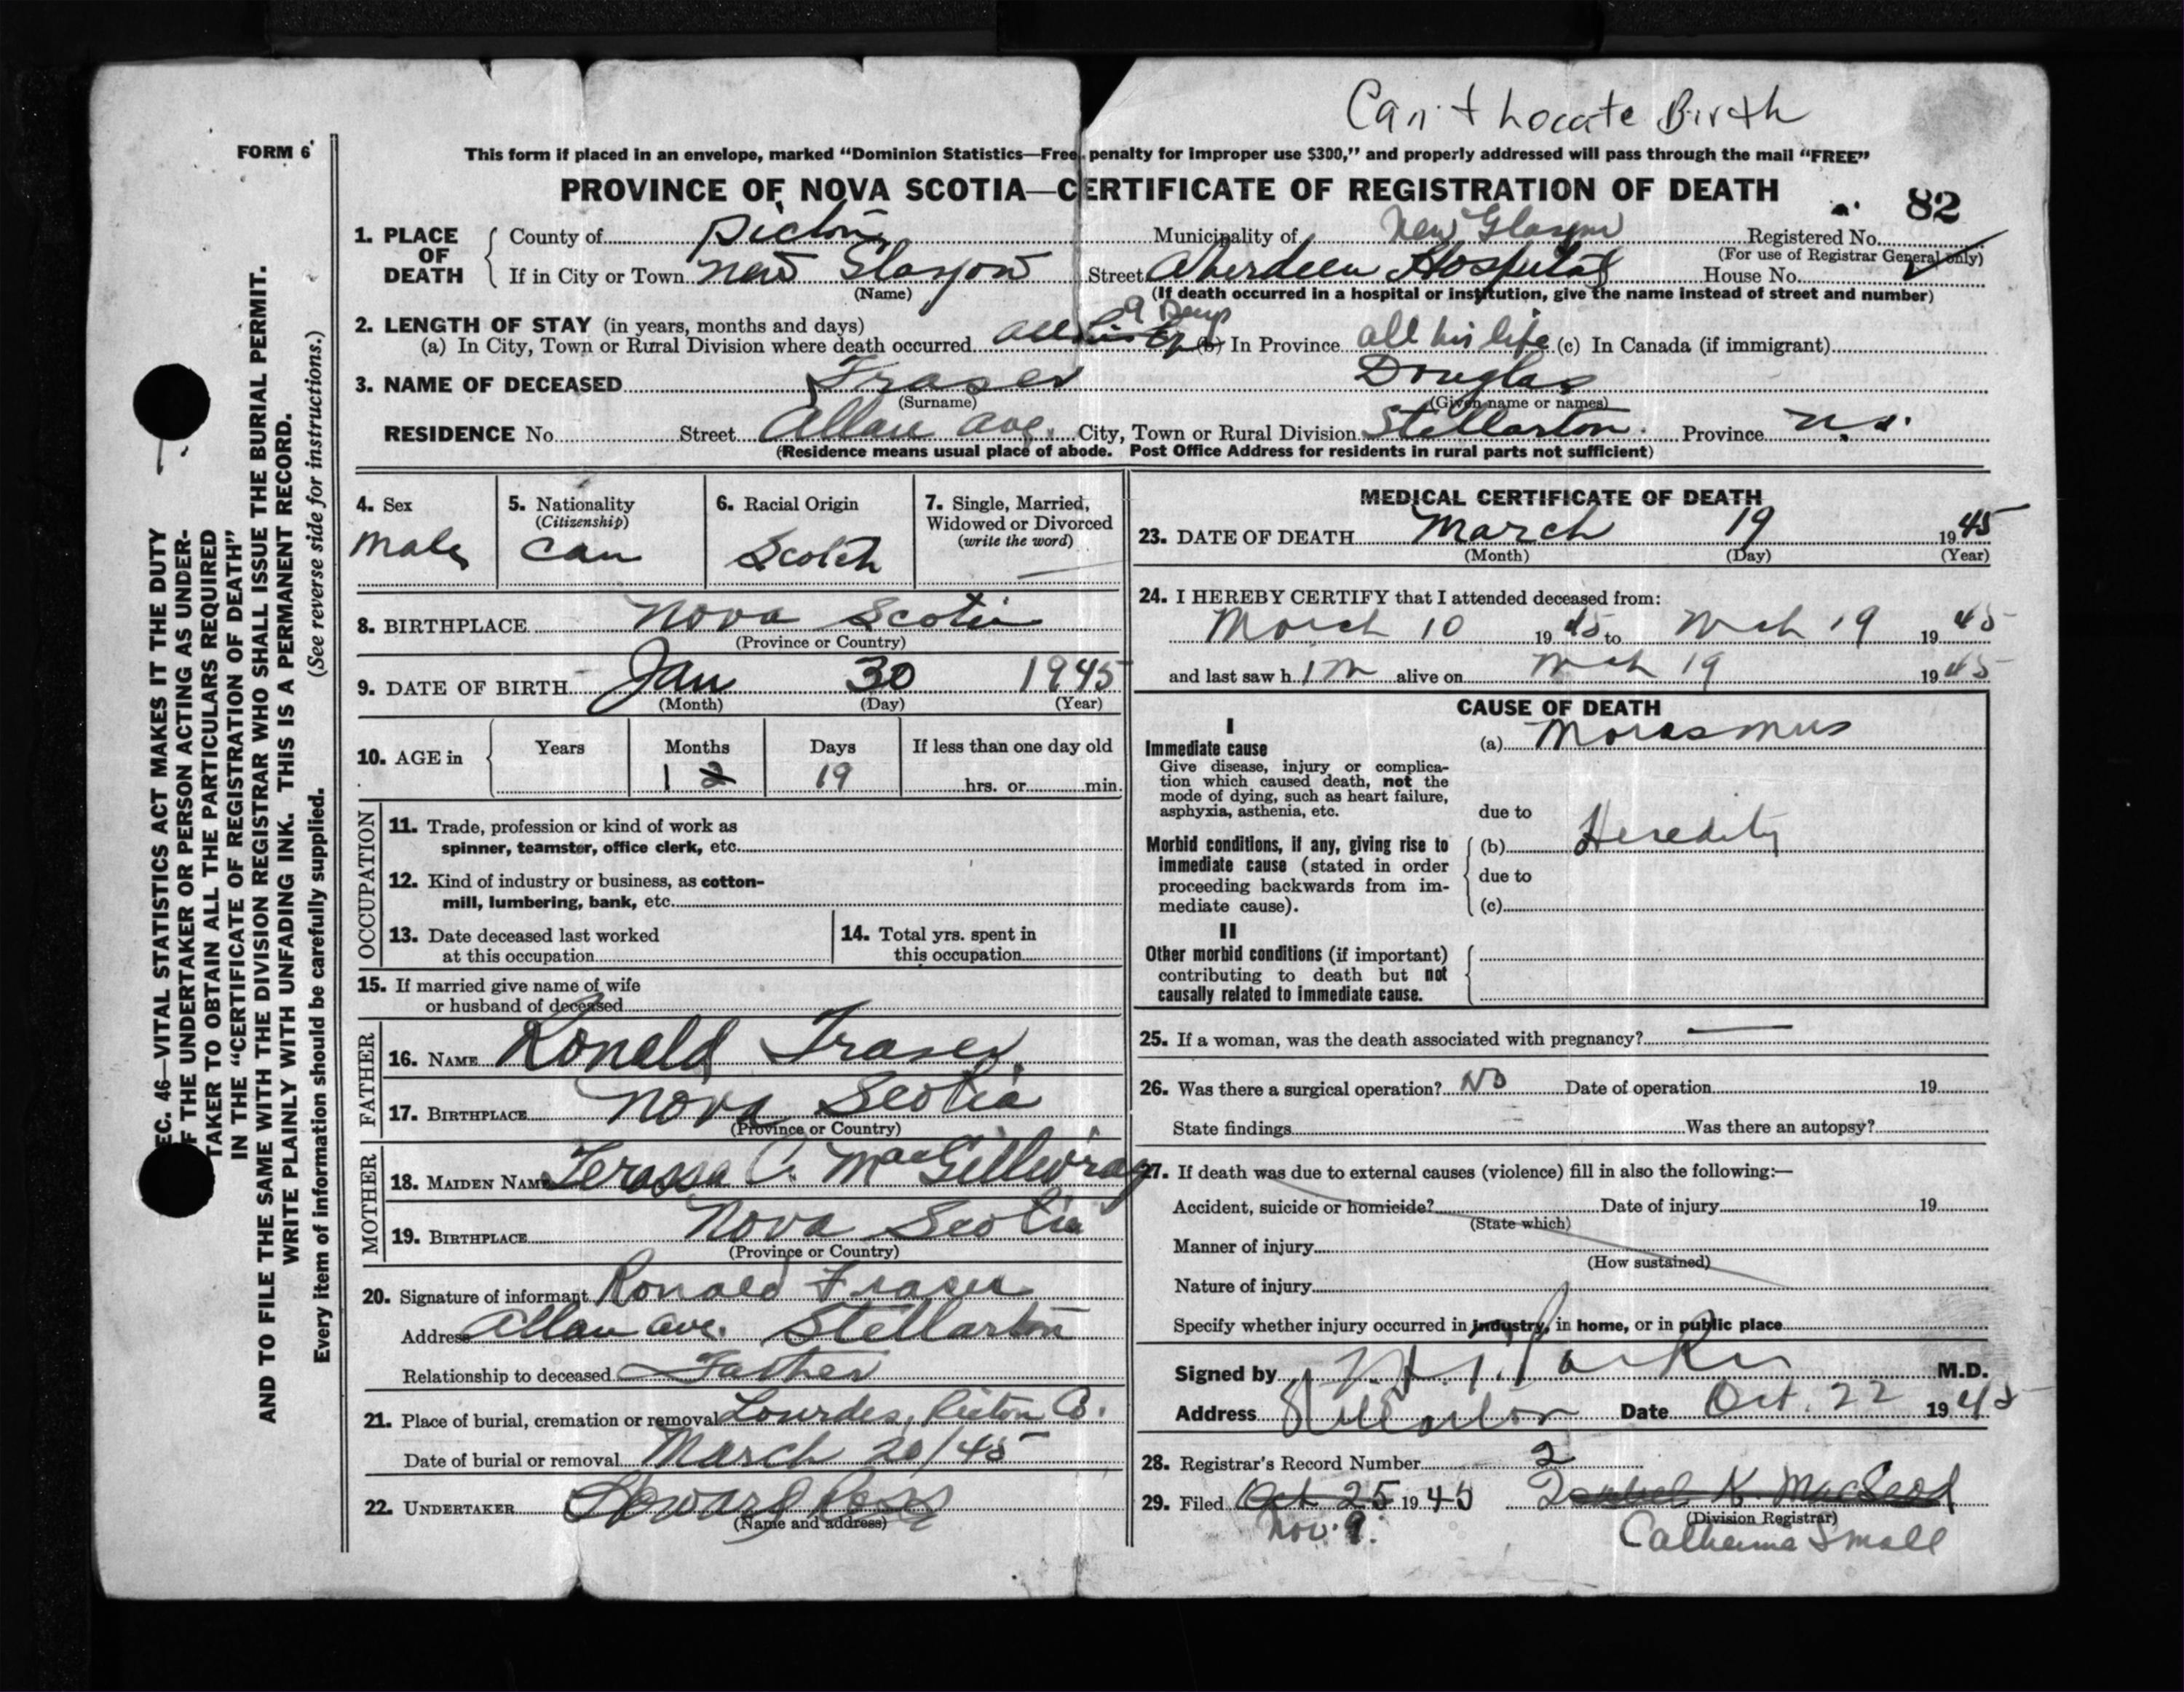 Can't Locate Birth
FORM 6
This form if placed in an envelope, marked "Dominion Statistics—Free, penalty for improper use $300," and properly addressed will pass through the mail "FREE"
PROVINCE OF NOVA SCOTIA—CERTIFICATE OF REGISTRATION OF DEATH
82
1. PLACE OF DEATH
County of Pictou Municipality of New Glasgow Registered No.
(For use of Registrar General only)
If in City or Town New Glasgow Street Aberdeen Hospital House No.
(Name) (If death occurred in a hospital or institution, give the name instead of street and number)
2. LENGTH OF STAY (in years, months and days) 9 Days
(a) In City, Town or Rural Division where death occurred all his life (b) In Province all his life (c) In Canada (if immigrant)
3. NAME OF DECEASED Fraser Douglas
(Surname) (Given name or names)
RESIDENCE No. Street Allan Ave. City, Town or Rural Division Stellarton Province N.S.
(Residence means usual place of abode. Post Office Address for residents in rural parts not sufficient)
4. Sex
Male
5. Nationality
(Citizenship)
Can
6. Racial Origin
Scotch
7. Single, Married,
Widowed or Divorced
(write the word)
8. BIRTHPLACE Nova Scotia
(Province or Country)
9. DATE OF BIRTH Jan 30 1945
(Month) (Day) (Year)
10. AGE in Years Months Days If less than one day old
1 2 19 hrs. or min.
OCCUPATION
11. Trade, profession or kind of work as
spinner, teamster, office clerk, etc.
12. Kind of industry or business, as cotton-
mill, lumbering, bank, etc.
13. Date deceased last worked
at this occupation
14. Total yrs. spent in
this occupation
15. If married give name of wife
or husband of deceased
FATHER
16. NAME Ronald Fraser
17. BIRTHPLACE Nova Scotia
(Province or Country)
MOTHER
18. MAIDEN NAME Teressa C. MacGillivray
19. BIRTHPLACE Nova Scotia
(Province or Country)
20. Signature of informant Ronald Fraser
Address Allan Ave. Stellarton
Relationship to deceased Father
21. Place of burial, cremation or removal Lourdes, Pictou Co.
Date of burial or removal March 20/45
22. UNDERTAKER Howard Ross
(Name and address)
MEDICAL CERTIFICATE OF DEATH
23. DATE OF DEATH March 19 1945
(Month) (Day) (Year)
24. I HEREBY CERTIFY that I attended deceased from:
March 10 1945 to Mch 19 1945
and last saw him alive on Mch 19 1945
CAUSE OF DEATH
I
Immediate cause (a) Morasmus
Give disease, injury or complica-
tion which caused death, not the
mode of dying, such as heart failure,
asphyxia, asthenia, etc. due to
Morbid conditions, if any, giving rise to (b) Heredity
immediate cause (stated in order
proceeding backwards from im- due to
mediate cause). (c)
II
Other morbid conditions (if important)
contributing to death but not
causally related to immediate cause.
25. If a woman, was the death associated with pregnancy?
26. Was there a surgical operation? No Date of operation 19
State findings Was there an autopsy?
27. If death was due to external causes (violence) fill in also the following:—
Accident, suicide or homicide? Date of injury 19
(State which)
Manner of injury
(How sustained)
Nature of injury
Specify whether injury occurred in industry, in home, or in public place
Signed by Parker M.D.
Address Stellarton Date Oct. 22 1945
28. Registrar's Record Number 2
29. Filed Oct 25 1945 Isabel K. MacLeod
Nov. 9. (Division Registrar)
Catherine Small
EC. 46—VITAL STATISTICS ACT MAKES IT THE DUTY
F THE UNDERTAKER OR PERSON ACTING AS UNDER-
TAKER TO OBTAIN ALL THE PARTICULARS REQUIRED
IN THE "CERTIFICATE OF REGISTRATION OF DEATH"
AND TO FILE THE SAME WITH THE DIVISION REGISTRAR WHO SHALL ISSUE THE BURIAL PERMIT.
WRITE PLAINLY WITH UNFADING INK. THIS IS A PERMANENT RECORD.
Every item of information should be carefully supplied. (See reverse side for instructions.)